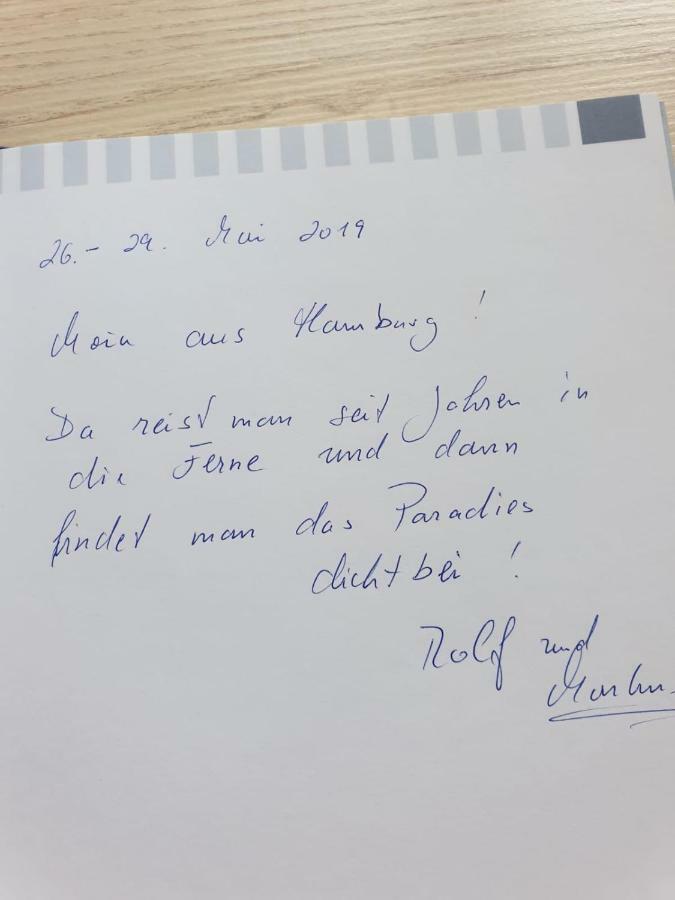 26.- 29. Mai 2019
Moin aus Hamburg!
Da reist man seit Jahren in
die Ferne und dann
findet man das Paradies
dicht bei!
Rolf und